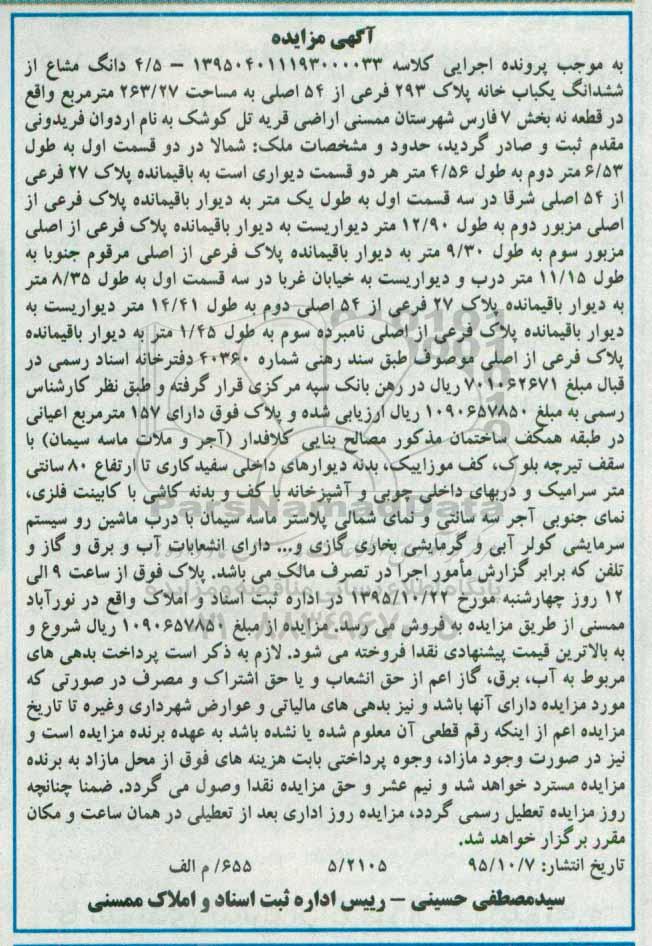 آگهی مزایده
به موجب پرونده اجرایی کلاسه ۱۳۹۵۰۴۰۱۱۱۹۳۰۰۰۰۳۳ – ۴/۵ دانگ مشاع از
ششدانگ یکباب خانه پلاک ۲۹۳ فرعی از ۵۴ اصلی به مساحت ۲۶۳/۲۷ مترمربع واقع
در قطعه نه بخش ۷ فارس شهرستان ممسنی اراضی قریه تل کوشک به نام اردوان فریدونی
مقدم ثبت و صادر گردید، حدود و مشخصات ملک: شمالا در دو قسمت اول به طول
۶/۵۳ متر دوم به طول ۴/۵۶ متر هر دو قسمت دیواری است به باقیمانده پلاک ۲۷ فرعی
از ۵۴ اصلی شرقا در سه قسمت اول به طول یک متر به دیوار باقیمانده پلاک فرعی از
اصلی مزبور دوم به طول ۱۲/۹۰ متر دیواریست به دیوار باقیمانده پلاک فرعی از اصلی
مزبور سوم به طول ۹/۳۰ متر به دیوار باقیمانده پلاک فرعی از اصلی مرقوم جنوبا به
طول ۱۱/۱۵ متر درب و دیواریست به خیابان غربا در سه قسمت اول به طول ۸/۳۵ متر
به دیوار باقیمانده پلاک ۲۷ فرعی از ۵۴ اصلی دوم به طول ۱۴/۴۱ متر دیواریست به
دیوار باقیمانده پلاک فرعی از اصلی نامبرده سوم به طول ۱/۴۵ متر به دیوار باقیمانده
پلاک فرعی از اصلی موصوف طبق سند رهنی شماره ۴۰۳۶۰ دفترخانه اسناد رسمی در
قبال مبلغ ۷۰۱۰۶۲۶۷۱ ریال در رهن بانک سپه مرکزی قرار گرفته و طبق نظر کارشناس
رسمی به مبلغ ۱۰۹۰۶۵۷۸۵۰ ریال ارزیابی شده و پلاک فوق دارای ۱۵۷ مترمربع اعیانی
در طبقه همکف ساختمان مذکور مصالح بنایی کلافدار (آجر و ملات ماسه سیمان) با
سقف تیرچه بلوک، کف موزاییک، بدنه دیوارهای داخلی سفیدکاری تا ارتفاع ۸۰ سانتی
متر سرامیک و دربهای داخلی چوبی و آشپزخانه با کف و بدنه کاشی با کابینت فلزی،
نمای جنوبی آجر سه سانتی و نمای شمالی پلاستر ماسه سیمان با درب ماشین رو سیستم
سرمایشی کولر آبی و گرمایشی بخاری گازی و... دارای انشعابات آب و برق و گاز و
تلفن که برابر گزارش مأمور اجرا در تصرف مالک می باشد. پلاک فوق از ساعت ۹ الی
۱۲ روز چهارشنبه مورخ ۱۳۹۵/۱۰/۲۲ در اداره ثبت اسناد و املاک واقع در نورآباد
ممسنی از طریق مزایده به فروش می رسد. مزایده از مبلغ ۱۰۹۰۶۵۷۸۵۱ ریال شروع و
به بالاترین قیمت پیشنهادی نقدا فروخته می شود. لازم به ذکر است پرداخت بدهی های
مربوط به آب، برق، گاز اعم از حق انشعاب و یا حق اشتراک و مصرف در صورتی که
مورد مزایده دارای آنها باشد و نیز بدهی های مالیاتی و عوارض شهرداری وغیره تا تاریخ
مزایده اعم از اینکه رقم قطعی آن معلوم شده یا نشده باشد به عهده برنده مزایده است و
نیز در صورت وجود مازاد، وجوه پرداختی بابت هزینه های فوق از محل مازاد به برنده
مزایده مسترد خواهد شد و نیم عشر و حق مزایده نقدا وصول می گردد. ضمنا چنانچه
روز مزایده تعطیل رسمی گردد، مزایده روز اداری بعد از تعطیلی در همان ساعت و مکان
مقرر برگزار خواهد شد.
تاریخ انتشار: ۹۵/۱۰/۷ ۵/۲۱۰۵ ۶۵۵/ م الف
سیدمصطفی حسینی – رییس اداره ثبت اسناد و املاک ممسنی
ParsNamadData